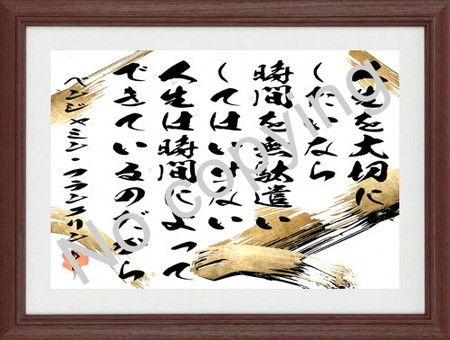 を大切に
したいなら
時間を無駄遣い
してはいけない
人生は時間によって
できているのだから
ベンジャミン・フランクリン
No copying